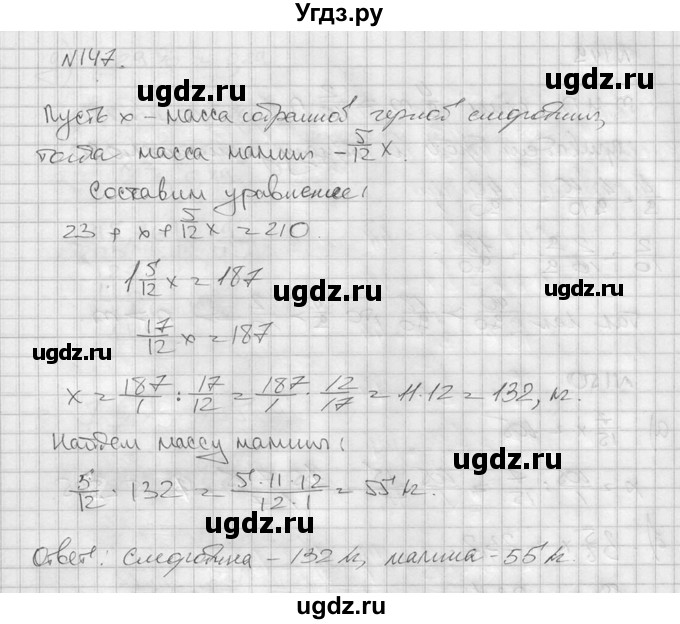 Угдз.ру
N147.
ugdz.ru
ugdz.ru
Пусть x – масса собранной черной смородины,
тогда масса малины – 5/12 x.
Составим уравнение:
23 + x + 5/12 x = 210.
1 5/12 x = 187
ugdz.ru
ugdz.ru
17/12 x = 187
ugdz.ru
ugdz.ru
x = 187/1 : 17/12 = 187/1 · 12/17 = 11·12 = 132, кг.
Найдем массу малины:
ugdz.ru
5/12 · 132 = 5·11·12/12·1 = 55 кг.
ugdz.ru
Ответ: смородина – 132 кг, малина – 55 кг.
ugdz.ru
ugdz.ru